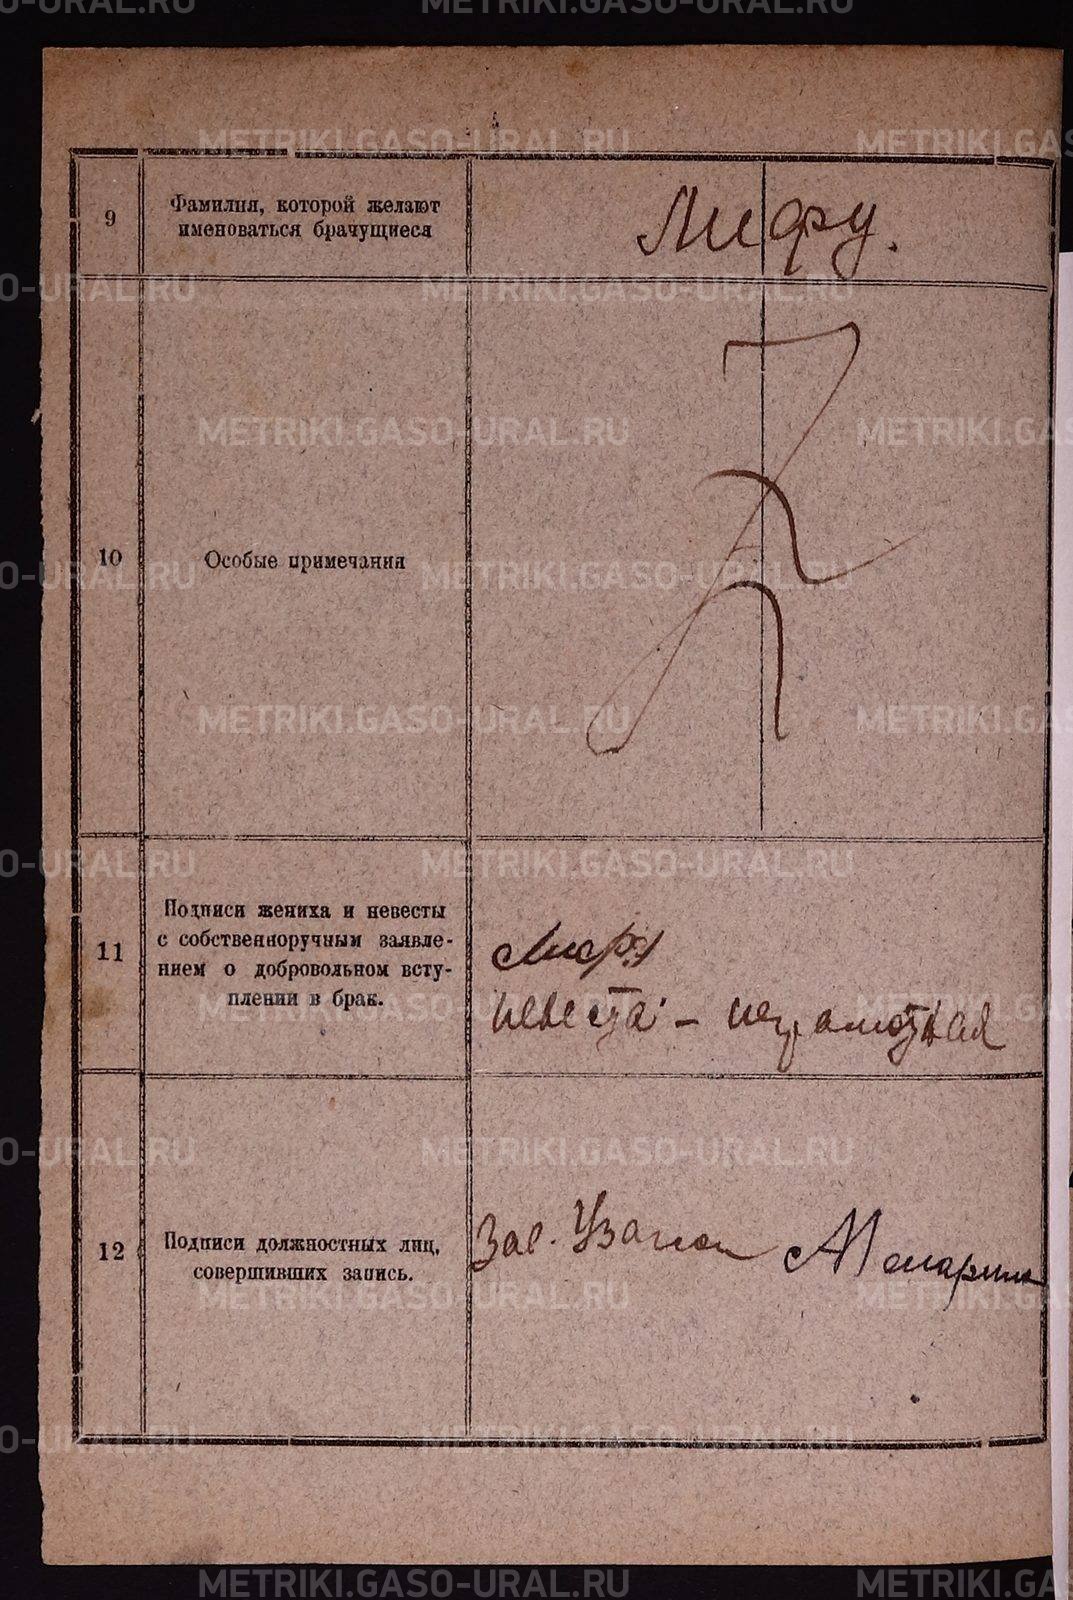 9
Фамилия, которой желают
именоваться брачущиеся
Лифу.
10
Особые примечания
11
Подписи жениха и невесты
с собственноручным заявле-
нием о добровольном всту-
плении в брак.
невеста - неграмотная
12
Подписи должностных лиц,
совершивших запись.
Зав.
METRIKI.GASO-URAL.RU